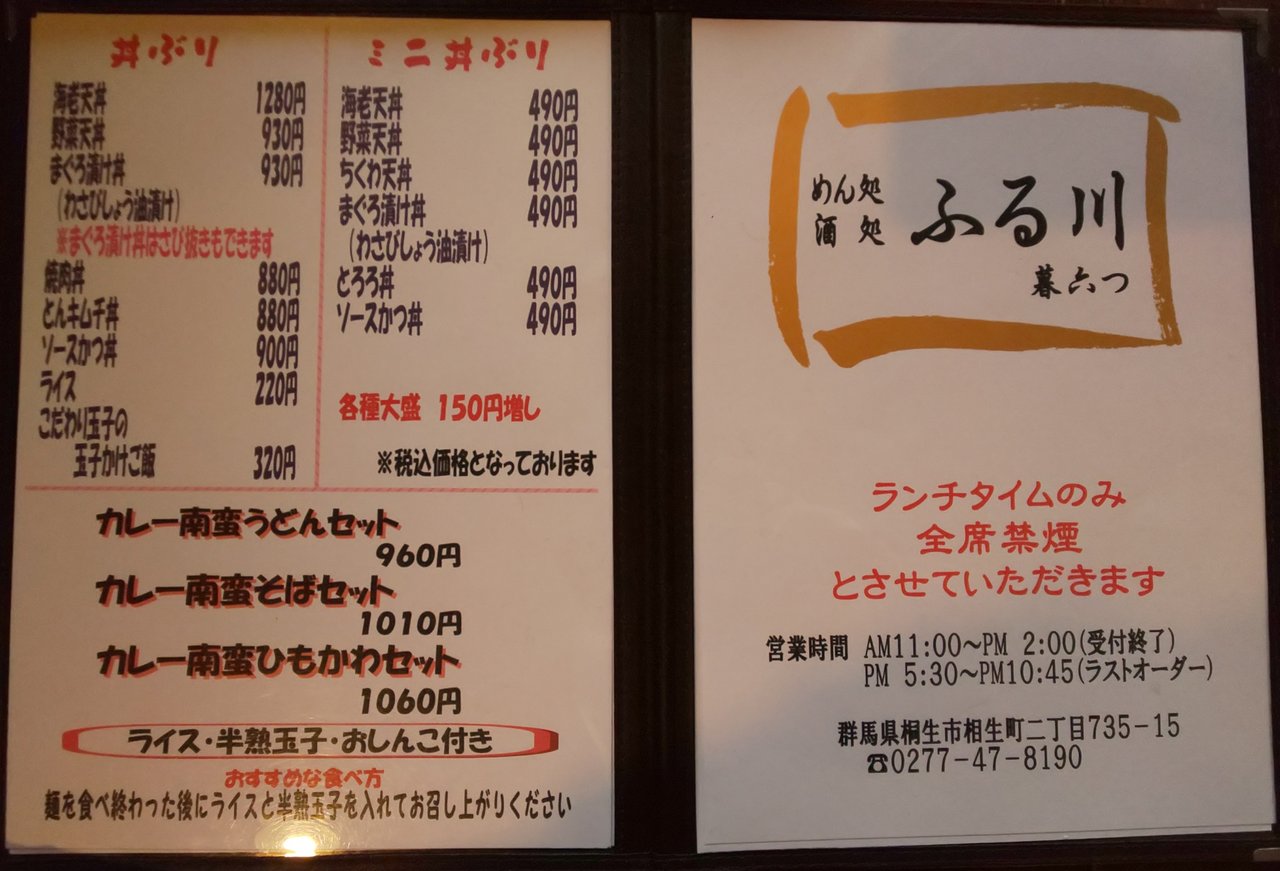 丼ぶり
海老天丼 1280円
野菜天丼 930円
まぐろ漬け丼 930円
(わさびしょう油漬け)
※まぐろ漬け丼はさび抜きもできます
焼肉丼 880円
とんキムチ丼 880円
ソースかつ丼 900円
ライス 220円
こだわり玉子の
玉子かけご飯 320円
ミニ丼ぶり
海老天丼 490円
野菜天丼 490円
ちくわ天丼 490円
まぐろ漬け丼 490円
(わさびしょう油漬け)
とろろ丼 490円
ソースかつ丼 490円
各種大盛 150円増し
※税込価格となっております
カレー南蛮うどんセット
960円
カレー南蛮そばセット
1010円
カレー南蛮ひもかわセット
1060円
ライス・半熟玉子・おしんこ付き
おすすめな食べ方
麺を食べ終わった後にライスと半熟玉子を入れてお召し上がりください
めん処
酒処
ふる川
暮六つ
ランチタイムのみ
全席禁煙
とさせていただきます
営業時間 AM11:00～PM 2:00(受付終了)
PM 5:30～PM10:45(ラストオーダー)
群馬県桐生市相生町二丁目735-15
☎0277-47-8190